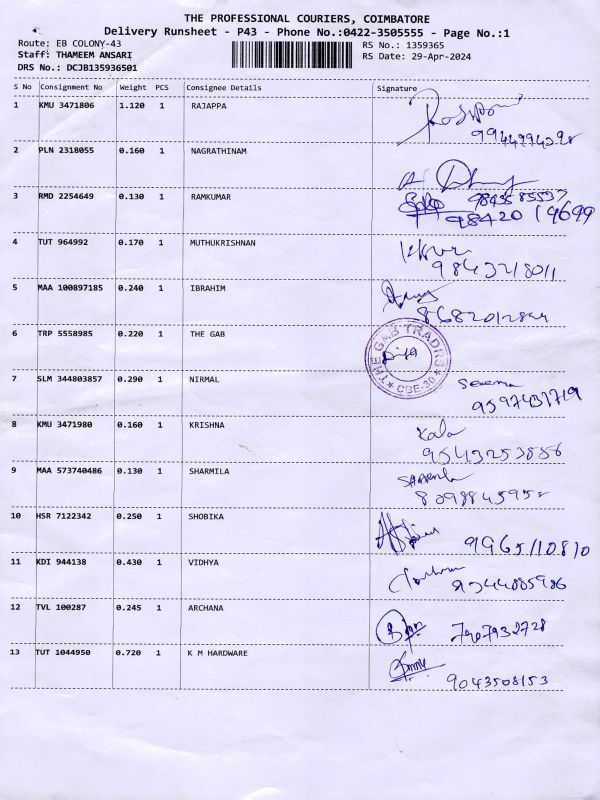 THE PROFESSIONAL COURIERS, COIMBATORE
Delivery Runsheet - P43 - Phone No.:0422-3505555 - Page No.:1
Route: EB COLONY-43 RS No.: 1359365
Staff: THAMEEM ANSARI RS Date: 29-Apr-2024
DRS No.: DCJB135936501
S No Consignment No Weight PCS Consignee Details Signature
1 KMU 3471806 1.120 1 RAJAPPA
2 PLN 2318055 0.160 1 NAGRATHINAM
3 RMD 2254649 0.130 1 RAMKUMAR
98420 19699
4 TUT 964992 0.170 1 MUTHUKRISHNAN
9843218011
5 MAA 100897185 0.240 1 IBRAHIM
6 TRP 5558985 0.220 1 THE GAB
THE GAB TRADRS
CBE-30
7 SLM 344803857 0.290 1 NIRMAL
Seema
8 KMU 3471980 0.160 1 KRISHNA
Kala
9543253856
9 MAA 573740486 0.130 1 SHARMILA
10 HSR 7122342 0.250 1 SHOBIKA
9965110810
11 KDI 944138 0.430 1 VIDHYA
12 TVL 100287 0.245 1 ARCHANA
13 TUT 1044950 0.720 1 K M HARDWARE
9043508153